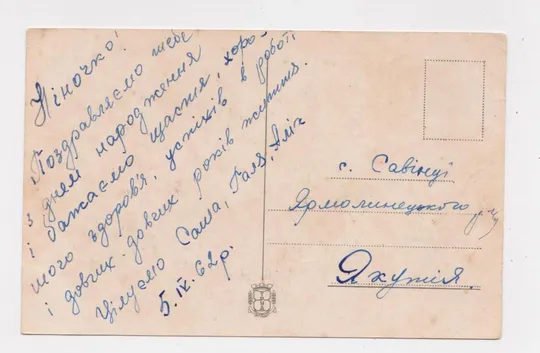 Ніночко!
Поздравляємо тебе
з днем народження
і бажаємо щастя, хоро-
шого здоров'я, успіхів в роботі
і довгих-довгих років життя.
Цілуємо Саша, Галя, Алік
5.IV.62р.
с. Савінці
Ярмолинецького